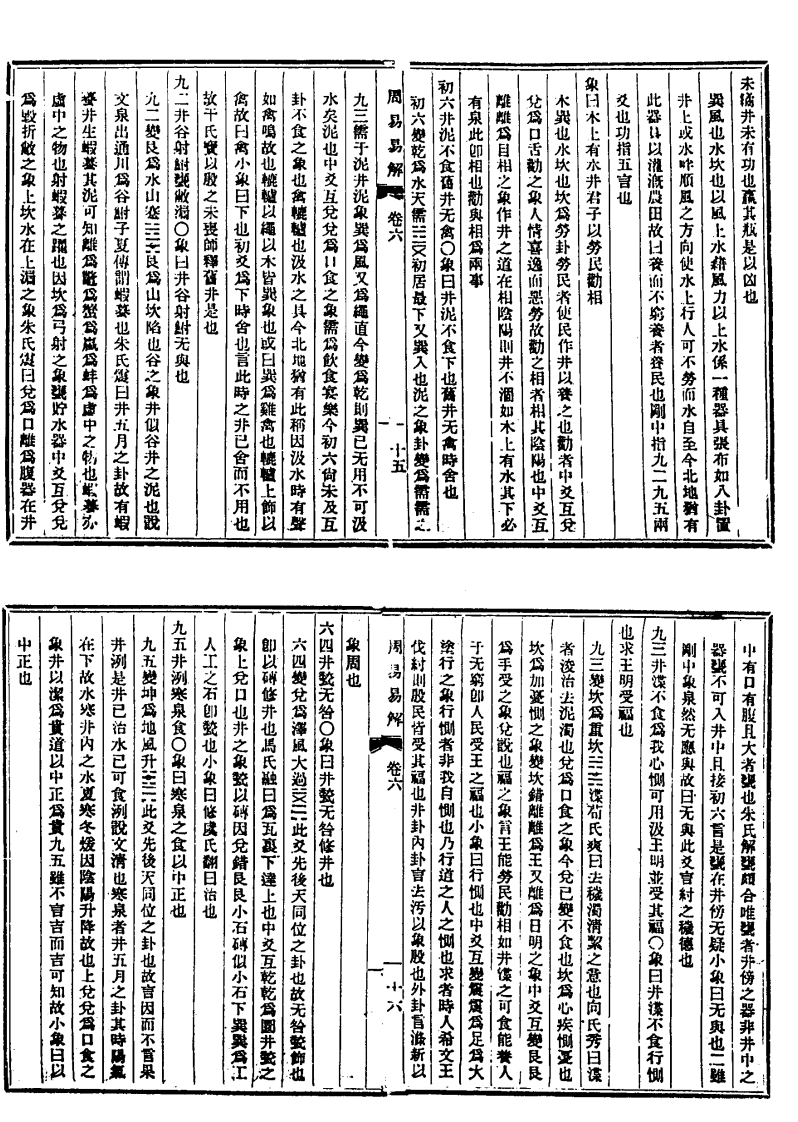 未繘井未有功也羸其瓶是以凶也
巽風也水坎也以風上水藉風力以上水係一種器具張布如八卦置
井上或水畔順風之方向使水上行人可不勞而水自至今北地猶有
此器具以灌漑農田故曰養而不窮養者容民也剛中指九二九五兩
爻也功指五言也
象曰木上有水井君子以勞民勸相
木巽也水坎也坎爲勞卦勞民者使民作井以養之也勸者中爻互兌
兌爲口舌勸之象人情喜逸而惡勞故勸之相者相其陰陽也中爻互
離離爲目相之象作井之道在相陰陽則井不涸如木上有水其下必
有泉此卽相也勸與相爲兩事
初六井泥不食舊井无禽〇象曰井泥不食下也舊井无禽時舍也
初六變乾爲水天需☵☰初居最下又巽入也泥之象卦變爲需需之
周易易解 卷六 十五
九三需于泥井泥象巽風又爲繩直今變爲乾則巽已无用不可汲
水矣泥也中爻互兌兌爲口食之象需爲飲食宴樂今初六尙未及互
卦不食之象也禽轆轤也汲水之具今北地猶有此稱因汲水時有聲
如禽鳴故也轆轤以繩以木皆巽象也或曰巽爲雞禽也轆轤上飾以
禽故曰禽小象曰下也初爻爲下時舍也言此時之井已舍而不用也
故干氏寶以殷之未喪師釋舊井是也
九二井谷射鮒甕敝漏〇象曰井谷射鮒无與也
九二變艮爲水山蹇☵☶艮爲山坎陷也谷之象井似谷井之泥也說
文泉出通川爲谷鮒子夏傳謂蝦蟇也朱氏震曰井五月之卦故有蝦
蟇井生蝦蟇其泥可知離爲鼈爲蟹爲蠃爲蚌爲虛中之物也蝦蟇亦
虛中之物也射蝦蟇之躍也因坎爲弓射之象甕貯水器中爻互兌兌
爲毀折敝之象上坎水在上漏之象朱氏震曰兌爲口離爲腹器在井
中有口有腹且大者甕也朱氏解甕頗合唯甕者井傍之器非井中之
器甕不可入井中且接初六言是甕在井傍无疑小象曰无與也二雖
剛中象泉然无應與故曰无與此爻言紂之穢德也
九三井渫不食爲我心惻可用汲王明並受其福〇象曰井渫不食行惻
也求王明受福也
九三變坎爲重坎☵☵渫荀氏爽曰去穢濁淸絜之意也向氏秀曰渫
者浚治去泥濁也兌爲口食之象今兌已變不食也坎爲心疾惻憂也
坎爲加憂惻之象變坎錯離離爲王又離爲日明之象中爻互變艮艮
爲手受之象兌說也福之象言王能勞民勸相如井渫之可食能養人
于无窮卽人民受王之福也小象曰行惻也中爻互變震震爲足爲大
塗行之象行惻者非我自惻也乃行道之人之惻也求者時人希文王
伐紂則殷民皆受其福也井卦內卦言去污以象殷也外卦言滌新以
周易易解 卷六 十六
象周也
六四井甃无咎〇象曰井甃无咎修井也
六四變兌爲澤風大過☱☴此爻先後天同位之卦也故无咎甃飾也
卽以磚修井也馬氏融曰爲瓦裏下達上也中爻互乾乾爲圜井甃之
象上兌口也井之象甃以磚因兌錯艮艮小石磚似小石下巽巽爲工
人工之石卽甃也小象曰修虞氏翻曰治也
九五井洌寒泉食〇象曰寒泉之食以中正也
九五變坤爲地風升☷☴此爻先後天同位之卦也故言因而不言果
井洌是井已治水已可食洌說文淸也寒泉者井五月之卦其時陽氣
在下故水寒井內之水夏寒冬煖因陰陽升降故也上兌兌爲口食之
象井以潔爲貴道以中正爲貴九五雖不言吉而吉可知故小象曰以
中正也